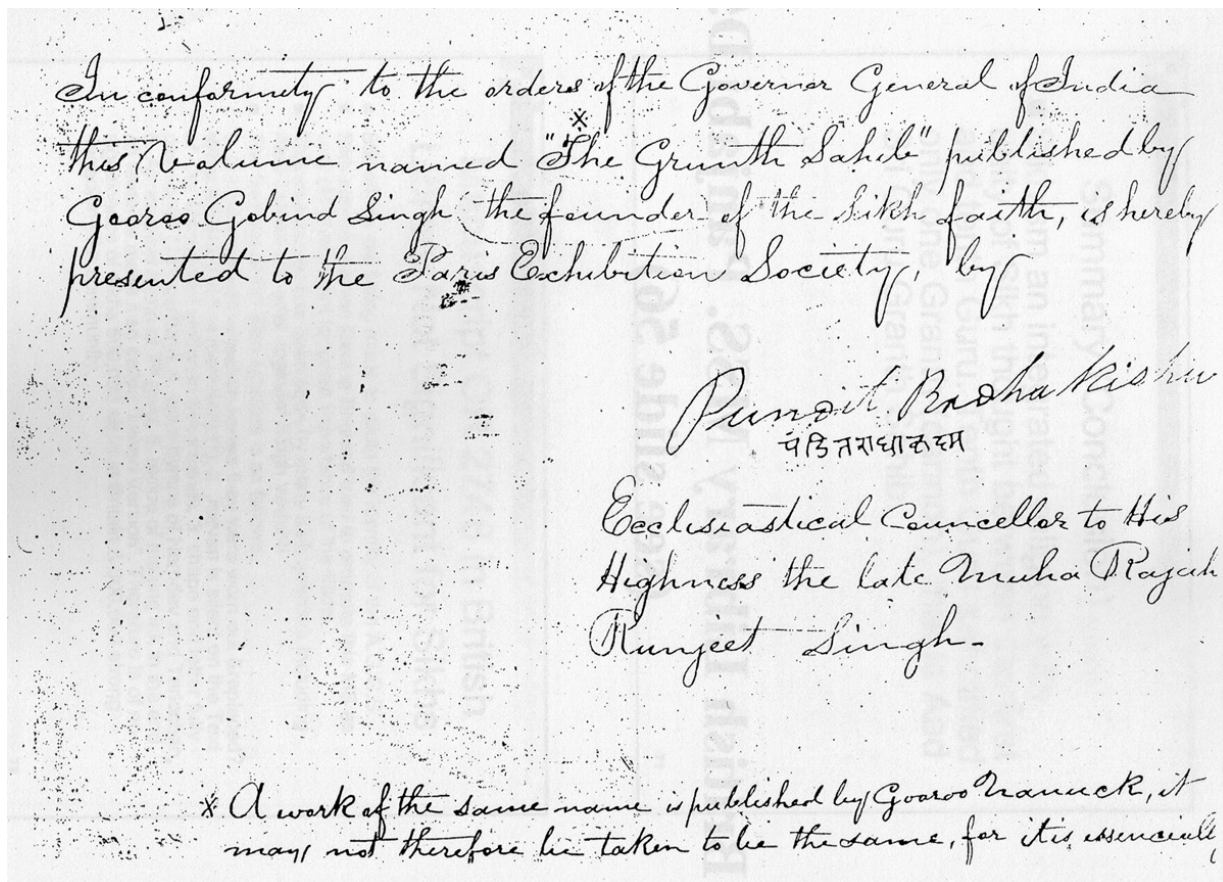 In conformity to the orders of the Governor General of India
this Volume named "The Grunth Sahib" * published by
Gooroo Gobind Singh the founder of the Sikh faith, is hereby
presented to the Paris Exhibition Society, by
Pundit Radha Kishn
पंडित राधा
Ecclesiastical Councellor to His
Highness the late Muha Rajah
Runjeet Singh-
* A work of the same name is published by Gooroo Nanuck, it
may not therefore be taken to be the same, for it is essencially